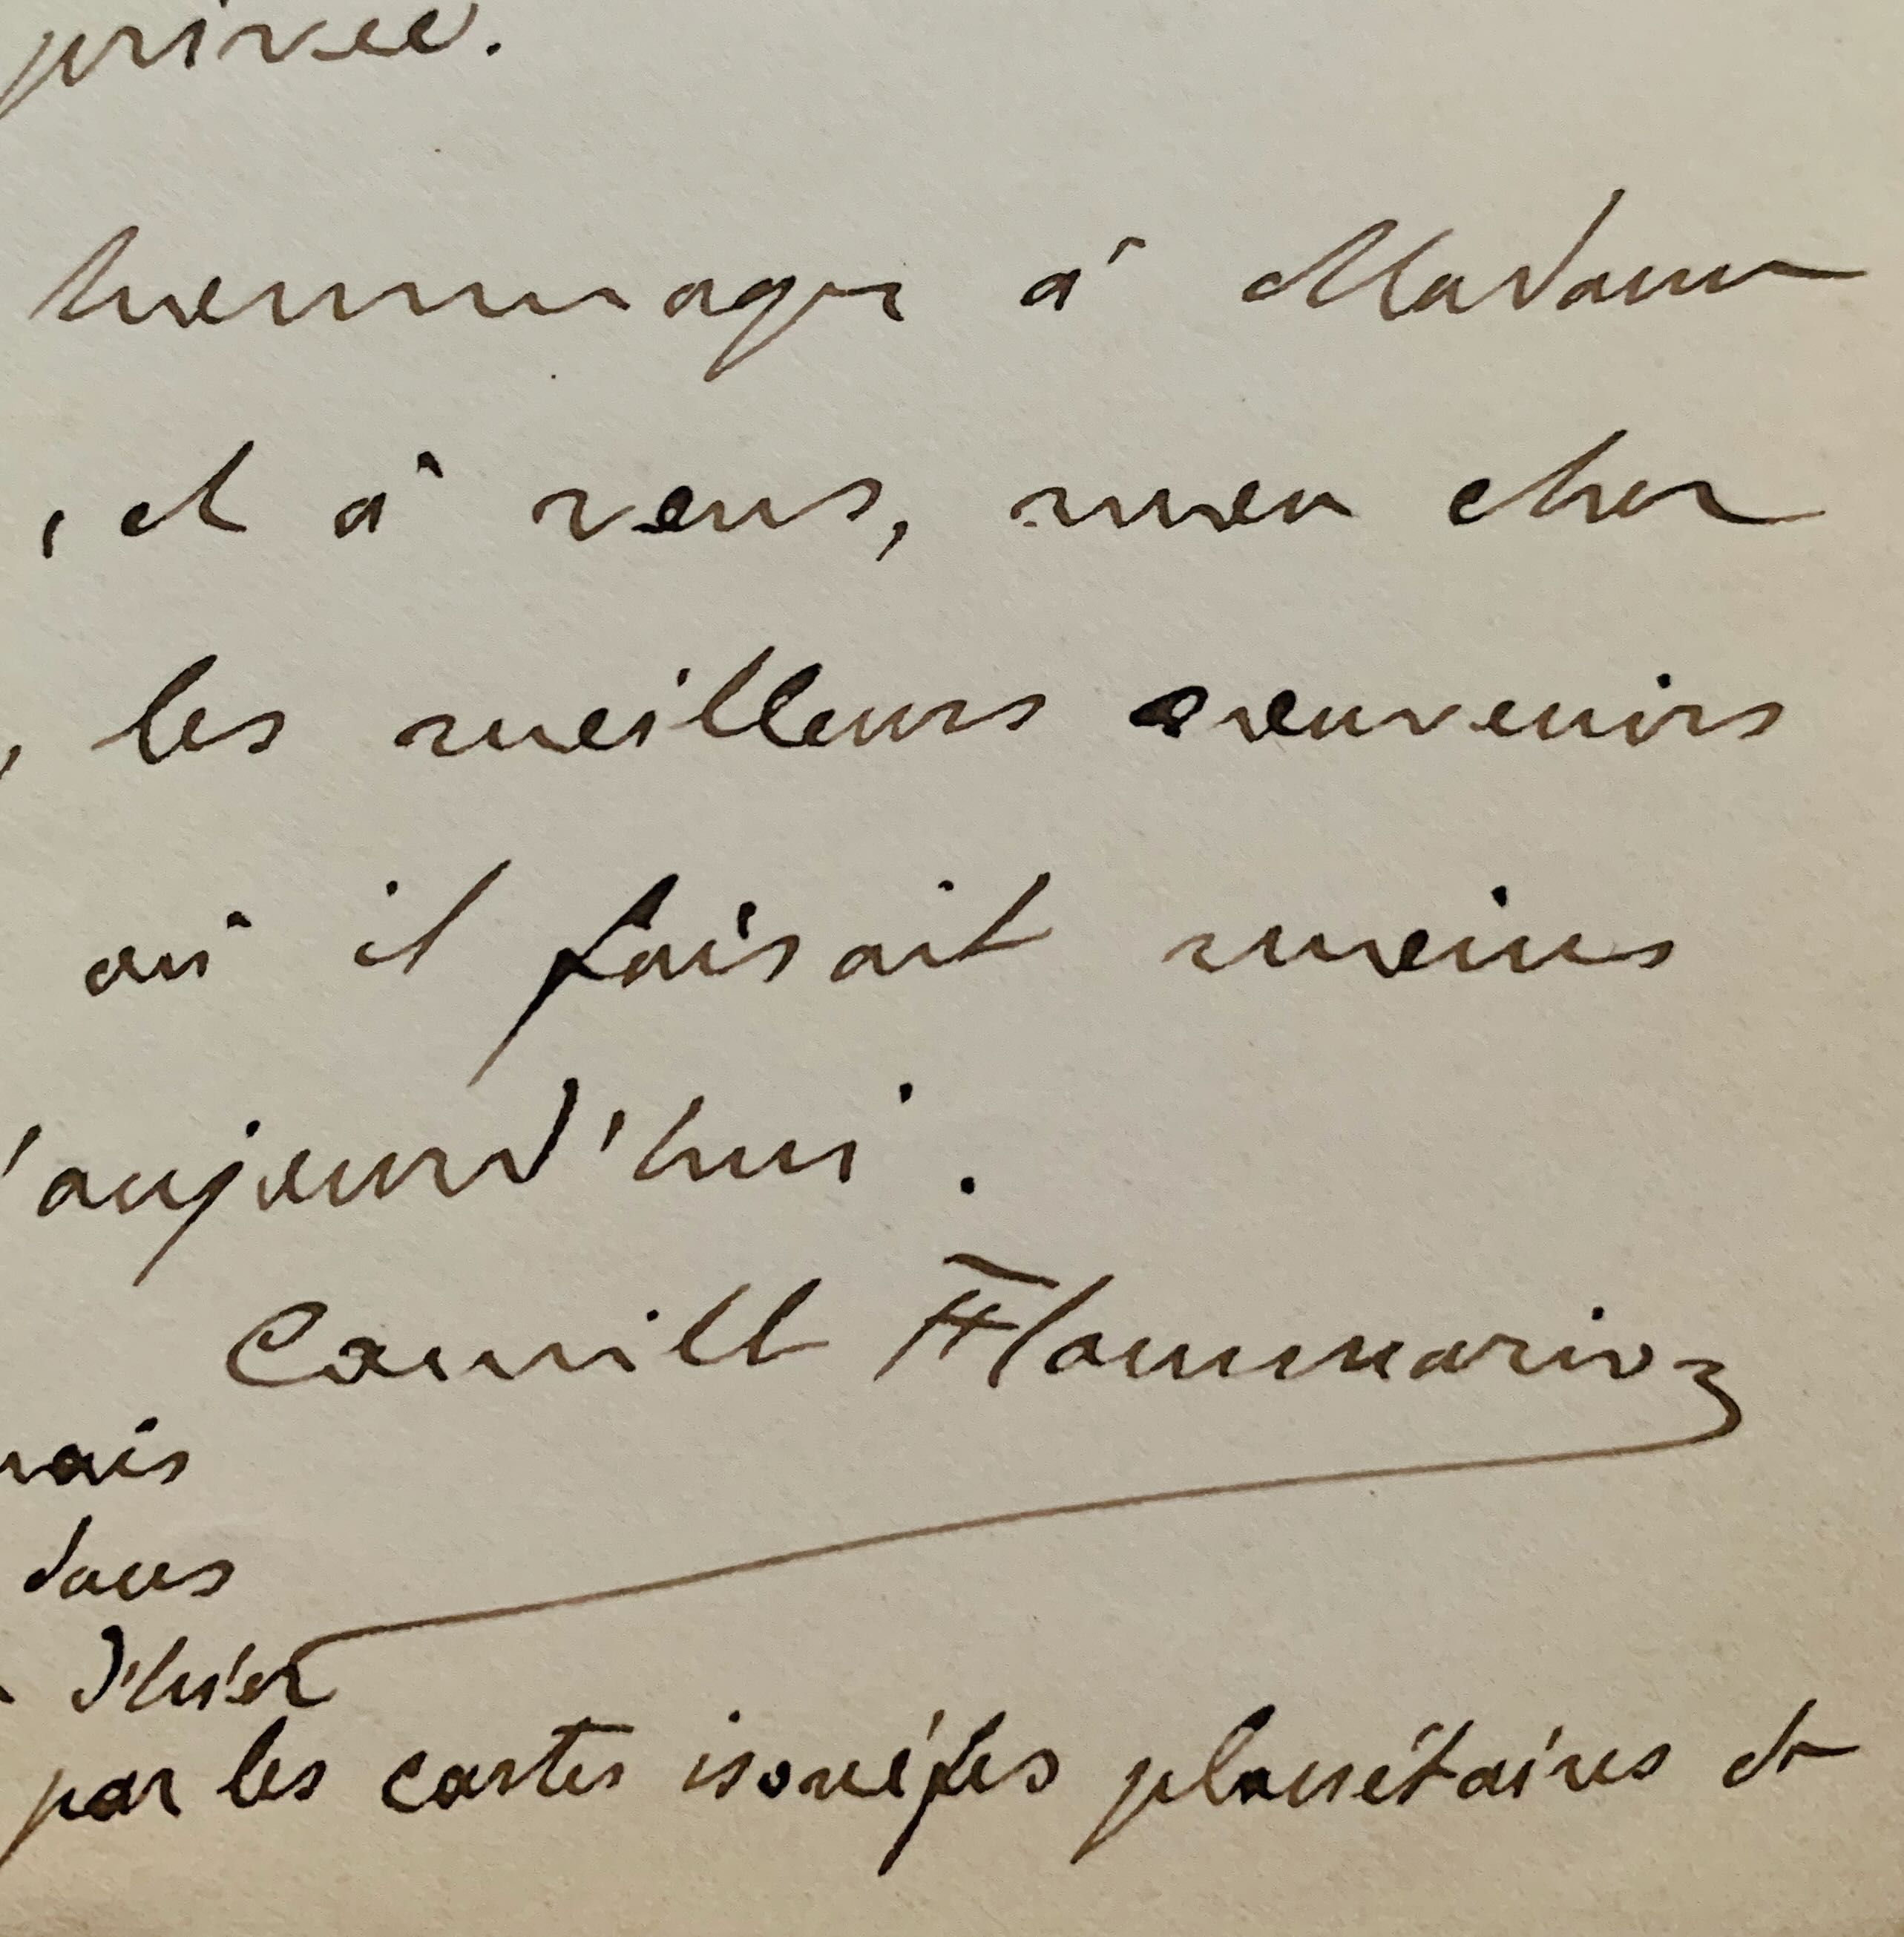 privée.
hommages à Madame
, et à vous, mon cher
, les meilleurs souvenirs
où il faisait moins
'aujourd'hui.
Camille Flammarion
dans
d'hier
par les cartes isonèfes planétaires de